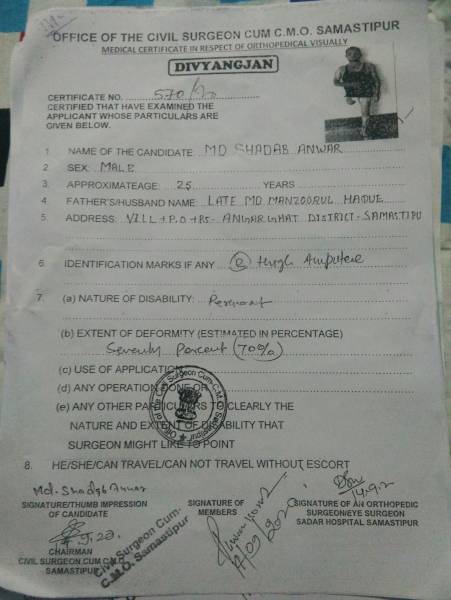 OFFICE OF THE CIVIL SURGEON CUM C.M.O. SAMASTIPUR
MEDICAL CERTIFICATE IN RESPECT OF ORTHOPEDICAL VISUALLY
DIVYANGJAN
CERTIFICATE NO. 570/20
CERTIFIED THAT HAVE EXAMINED THE
APPLICANT WHOSE PARTICULARS ARE
GIVEN BELOW.
1. NAME OF THE CANDIDATE: MD SHADAB ANWAR
2. SEX: MALE
3. APPROXIMATEAGE: 25 YEARS
4. FATHER'S/HUSBAND NAME: LATE MD. MANZOORUL HAQUE
5. ADDRESS: VILL+P.O+PS- ANGARGHAT DISTRICT- SAMASTIPU
6. IDENTIFICATION MARKS IF ANY thigh Amputee
7. (a) NATURE OF DISABILITY: Permanent
(b) EXTENT OF DEFORMITY (ESTIMATED IN PERCENTAGE)
Seventy Percent (70%)
(c) USE OF APPLICATION
(d) ANY OPERATION DONE OR
(e) ANY OTHER PARTICULERS TO CLEARLY THE
NATURE AND EXTENT OF DISABILITY THAT
SURGEON MIGHT LIKE TO POINT
Office of the Civil Surgeon Cum-C.M.O. Samastipur
8. HE/SHE/CAN TRAVEL/CAN NOT TRAVEL WITHOUT ESCORT
Md. Shadab Anwar
SIGNATURE/THUMB IMPRESSION
OF CANDIDATE
SIGNATURE OF
MEMBERS
SIGNATURE OF AN ORTHOPEDIC
SURGEON/EYE SURGEON
SADAR HOSPITAL SAMASTIPUR
CHAIRMAN
CIVIL SURGEON CUM C.M.O.
SAMASTIPUR
Civil Surgeon Cum-
C.M.O. Samastipur